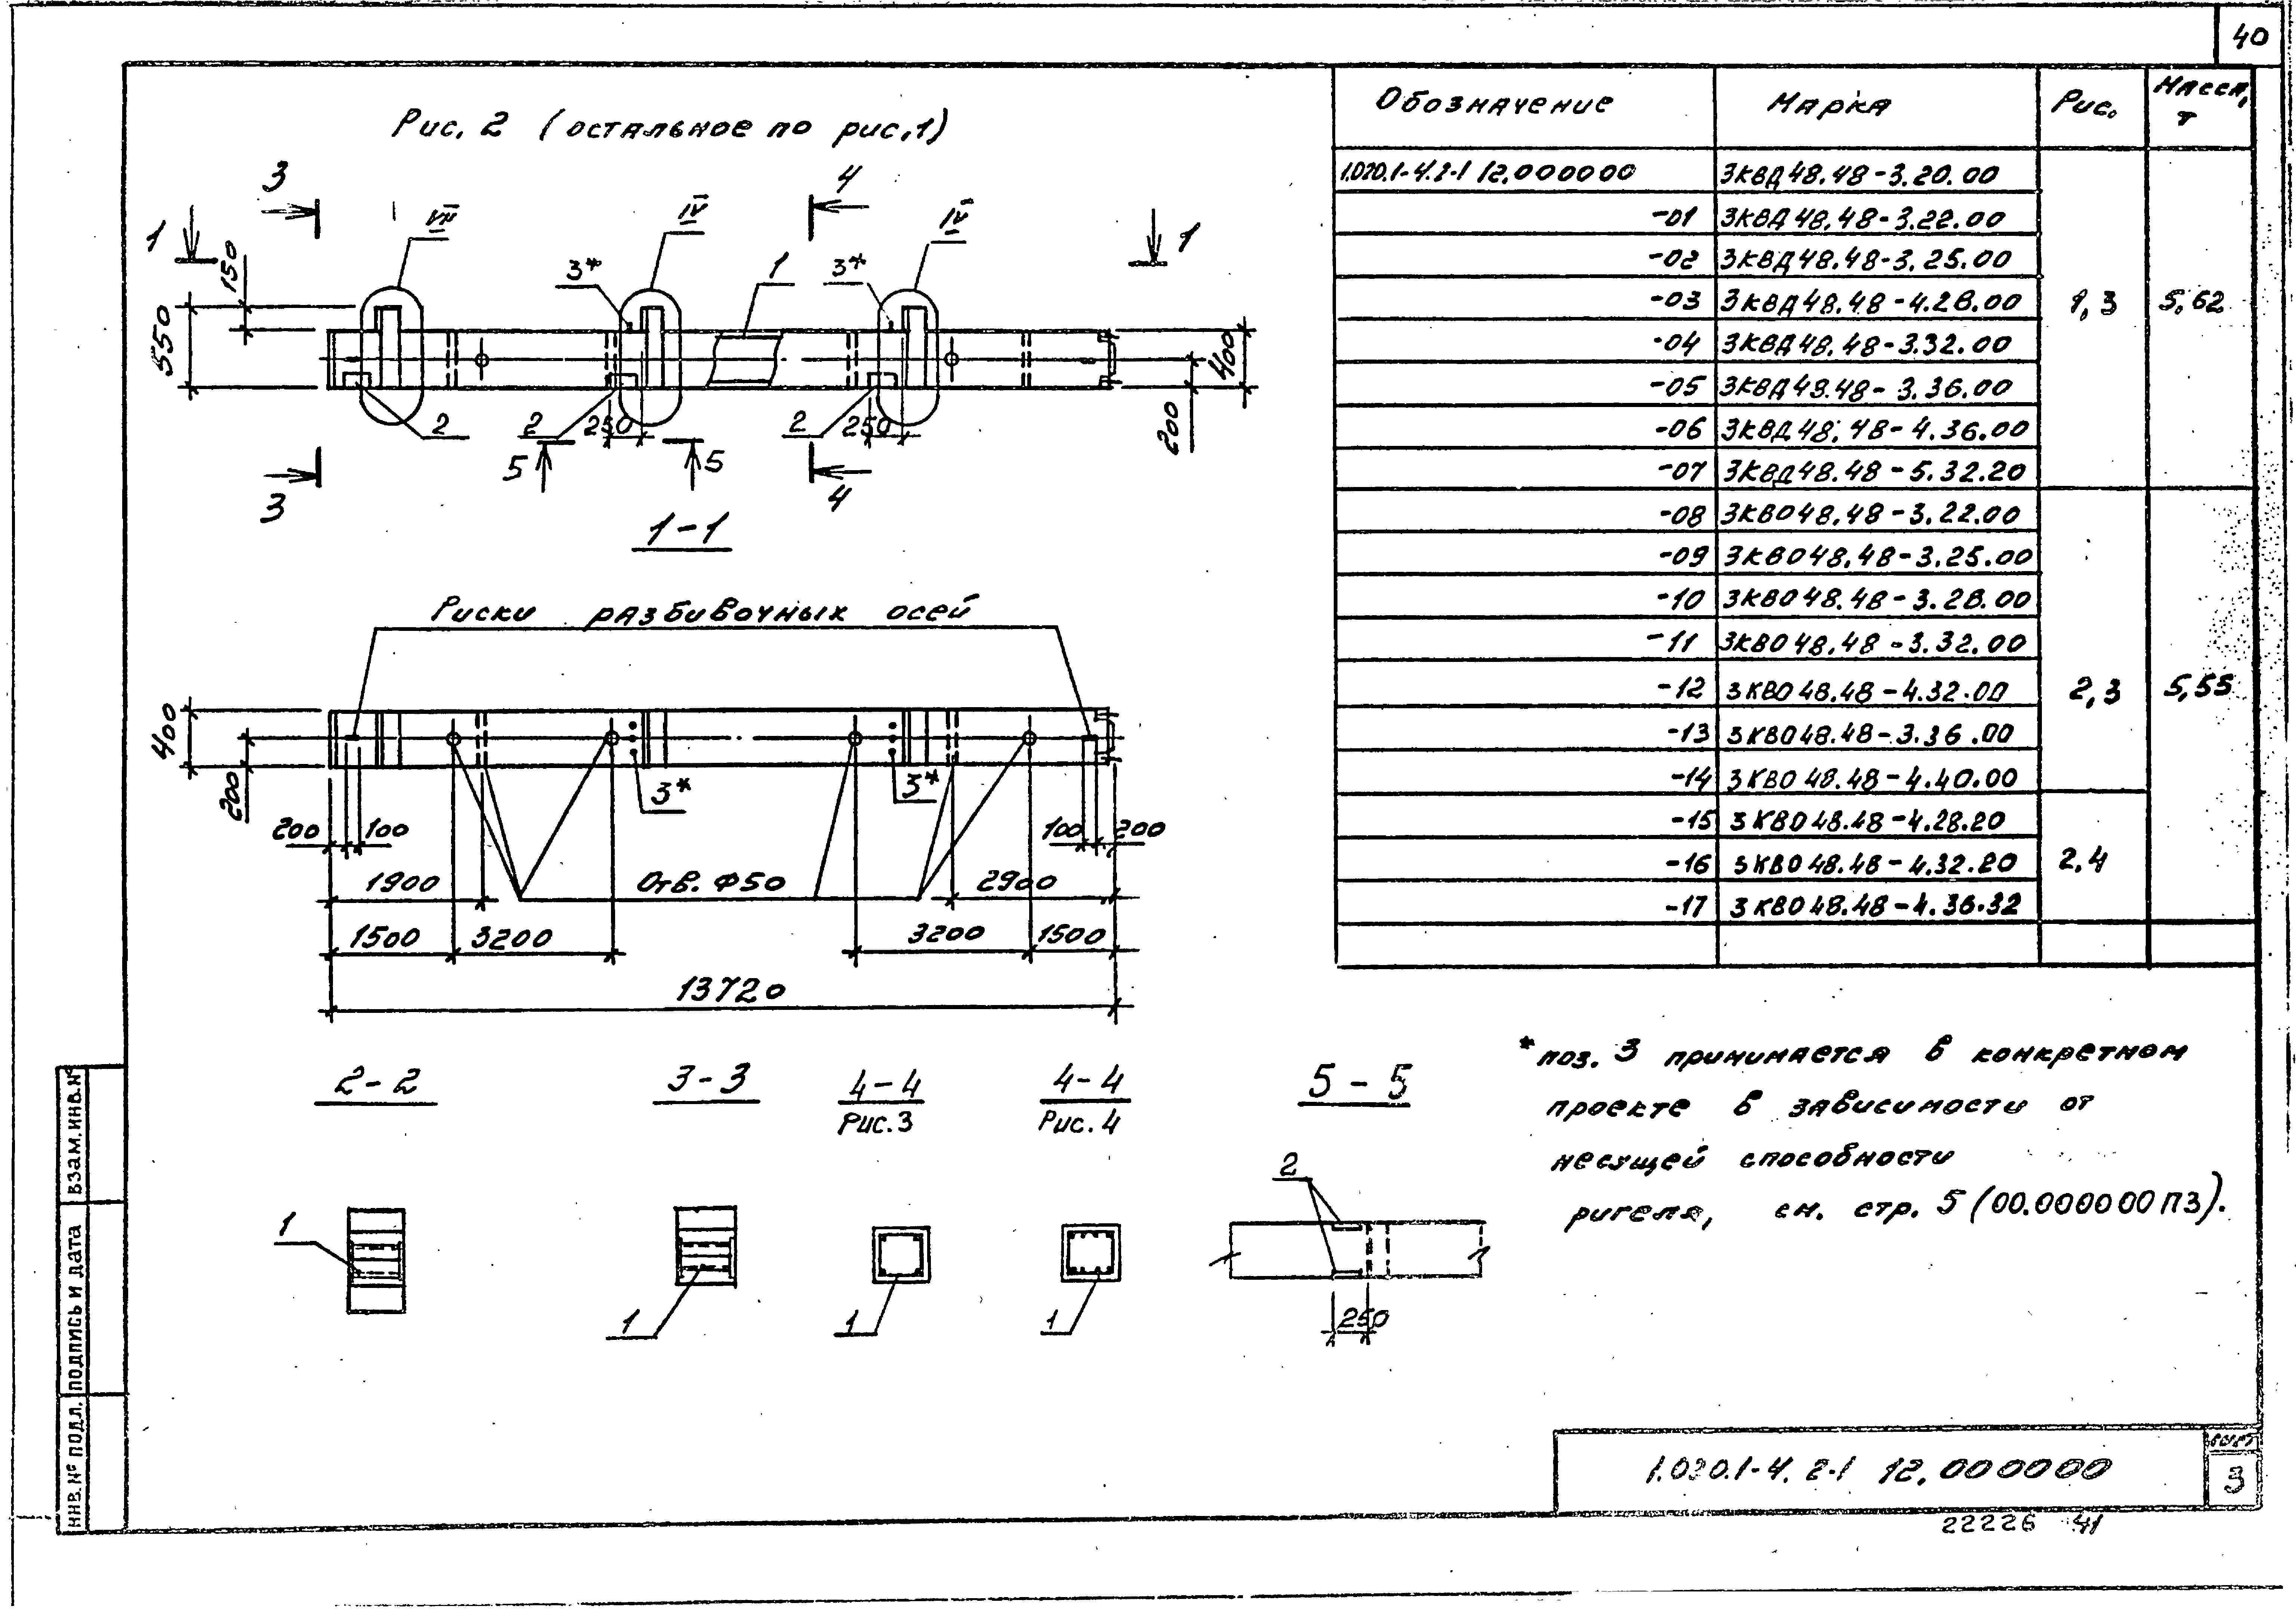 40
Рис. 2 (остальное по рис. 1)
3 4
1 1
VII IV IV
150
3* 1 3*
550
400
200
2 2 250 2 250
5 5
3 4
1-1
Риски разбивочных осей
400
200
3* 3*
200 100 100 200
1900 Отв. Ф50 2900
1500 3200 3200 1500
13720
2-2 3-3 4-4 4-4 5-5
Рис.3 Рис.4
2
1 1 1 1
250
Обозначение Марка Рис. Масса, т
1.020.1-4.2-1 12.000000 3КВД48.48-3.20.00
-01 3КВД48.48-3.22.00
-02 3КВД48.48-3.25.00
-03 3КВД48.48-4.28.00 1,3 5,62
-04 3КВД48.48-3.32.00
-05 3КВД48.48-3.36.00
-06 3КВД48.48-4.36.00
-07 3КВД48.48-5.32.20
-08 3КВО48.48-3.22.00
-09 3КВО48.48-3.25.00
-10 3КВО48.48-3.28.00
-11 3КВО48.48-3.32.00
-12 3КВО48.48-4.32.00 2,3 5,55
-13 3КВО48.48-3.36.00
-14 3КВО48.48-4.40.00
-15 3КВО48.48-4.28.20
-16 3КВО48.48-4.32.20 2,4
-17 3КВО48.48-4.36.32
* поз. 3 принимается в конкретном
проекте в зависимости от
несущей способности
ригеля, см. стр. 5 (00.000000ПЗ).
ИНВ.№ ПОДЛ. ПОДПИСЬ И ДАТА ВЗАМ.ИНВ.№
1.020.1-4.2-1 12.000000
Лист
3
22226 41